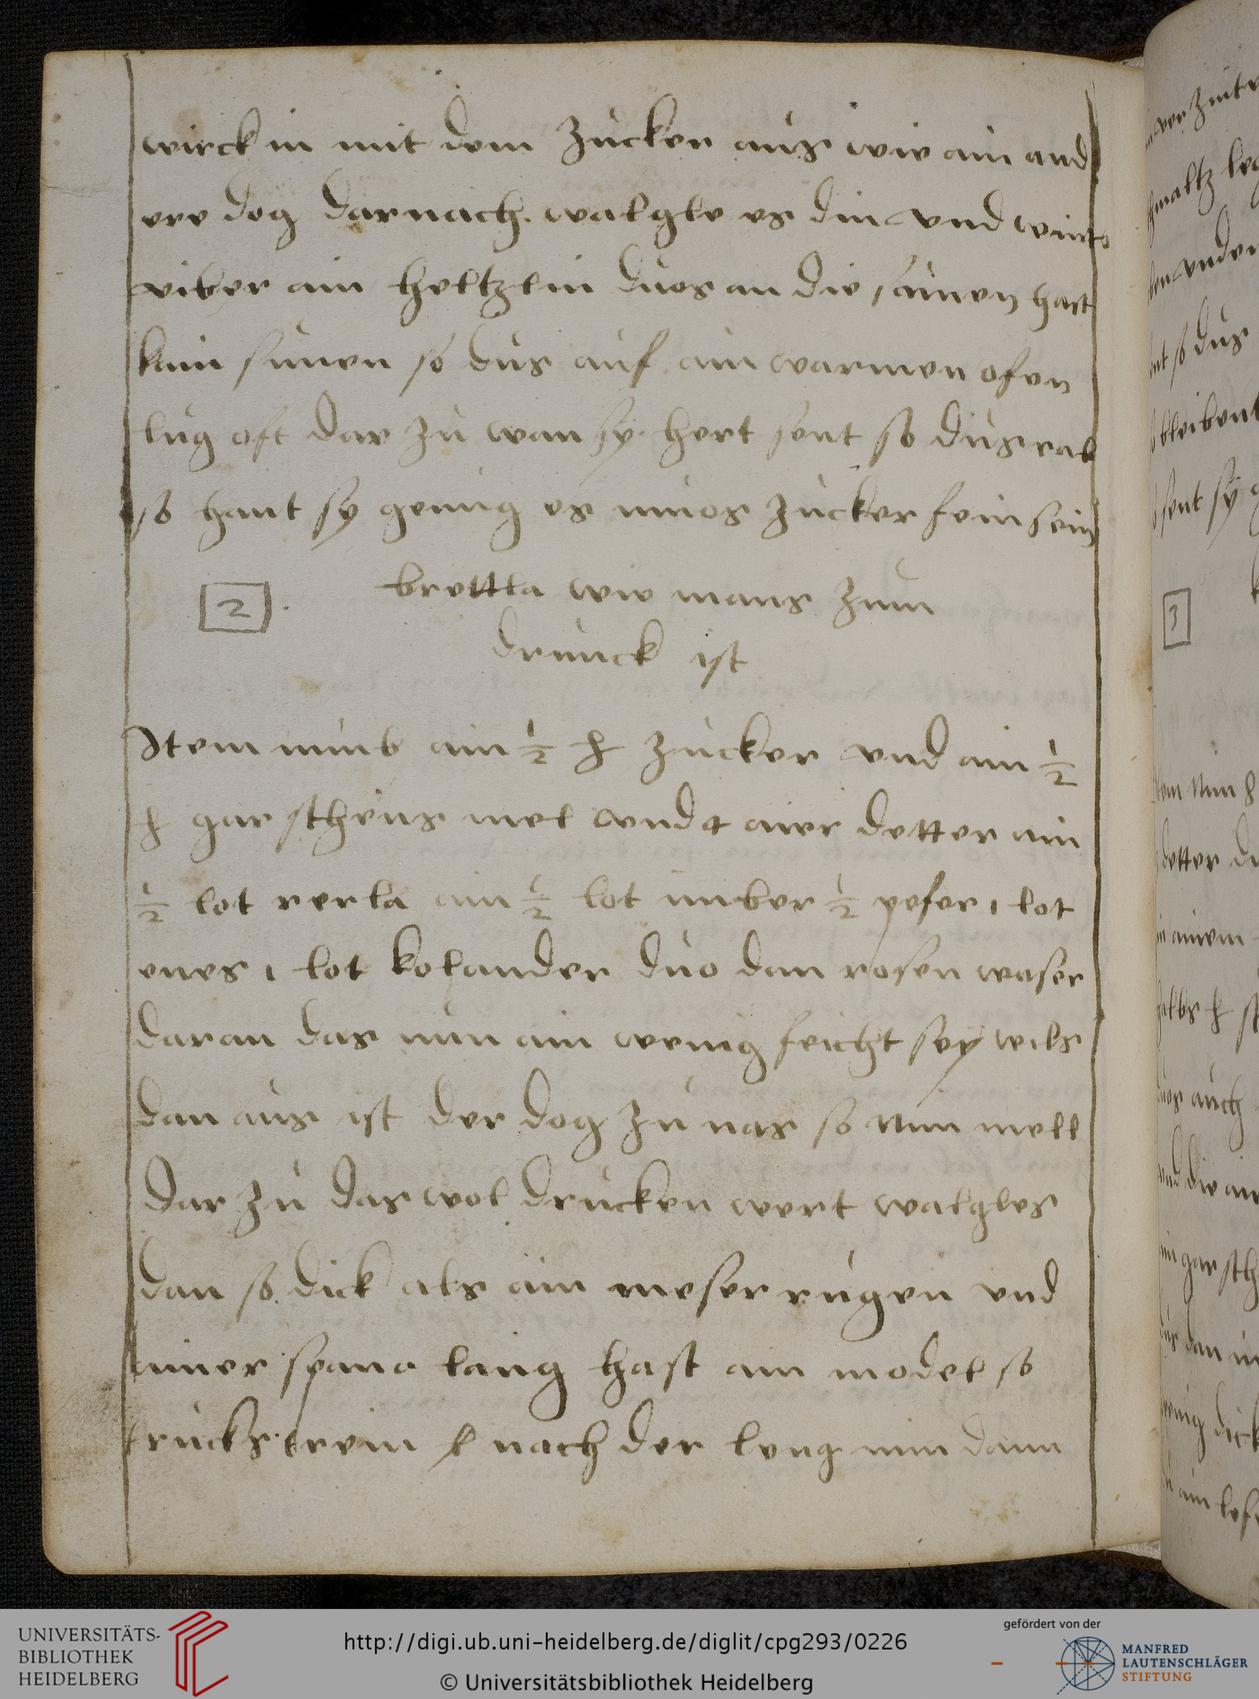 wirck in mit dem zucker aus wie ain and
ere dog darnach walgle es din vnd wint
viber ain heltzlin duos an die sunen hast
kain sunen so dus auf ain warmen ofen
lug oft dar zu wan sy hert sent so dus rab
so hant sy genug es muos zucker fein sein
2 brettla wie mans zum
drunck ist
Item nimb ain ½ ℔ zucker vnd ain ½
℔ gar sthens mel vnd 4 aier detter ain
½ lot rerla ain ½ lot imber ½ pefer 1 lot
enes 1 lot kolander duo dan rosen waser
daran das nun ain wenig feicht sey wils
dan aus ist der dog zu nas so nim mell
dar zu das wol drucken wert walgles
dan so dick als ain meser rugen vnd
ainer spana lang hast ain model so
trucks drein nach der leng nim dann
3
UNIVERSITÄTS-
BIBLIOTHEK
HEIDELBERG
http://digi.ub.uni-heidelberg.de/diglit/cpg293/0226
© Universitätsbibliothek Heidelberg
gefördert von der
MANFRED
LAUTENSCHLÄGER
STIFTUNG